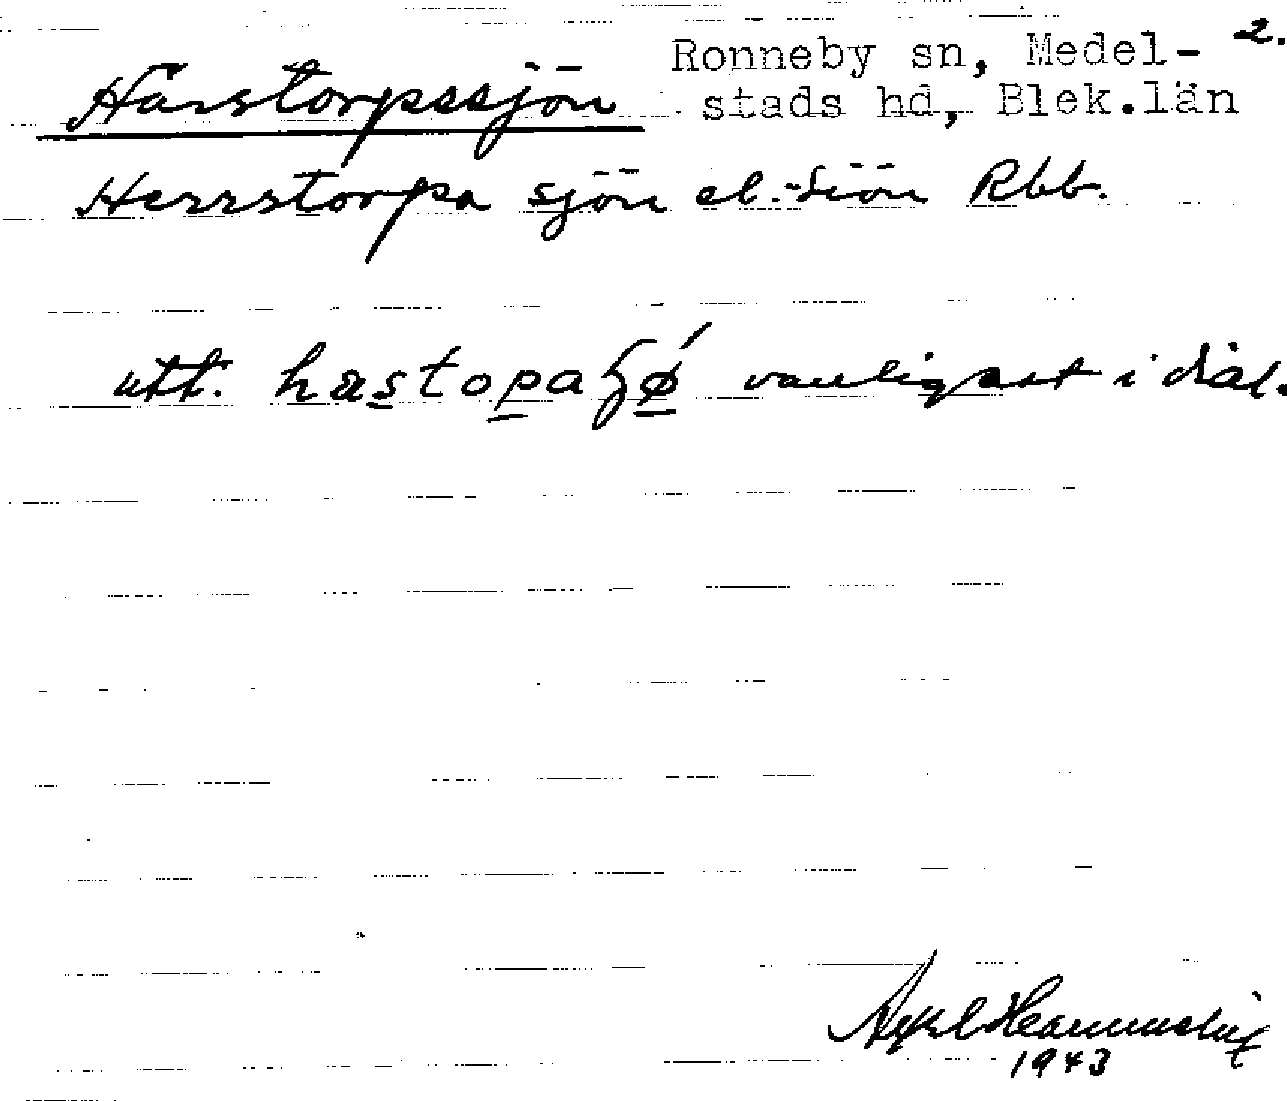 Härstorpssjön Ronneby sn, Medel- 2.
stads hd, Blek.län
Herrstorpa sjön el. -siön Rbb.
utt. hæstopaʒǿ vanligast i dial.
Axel
1943